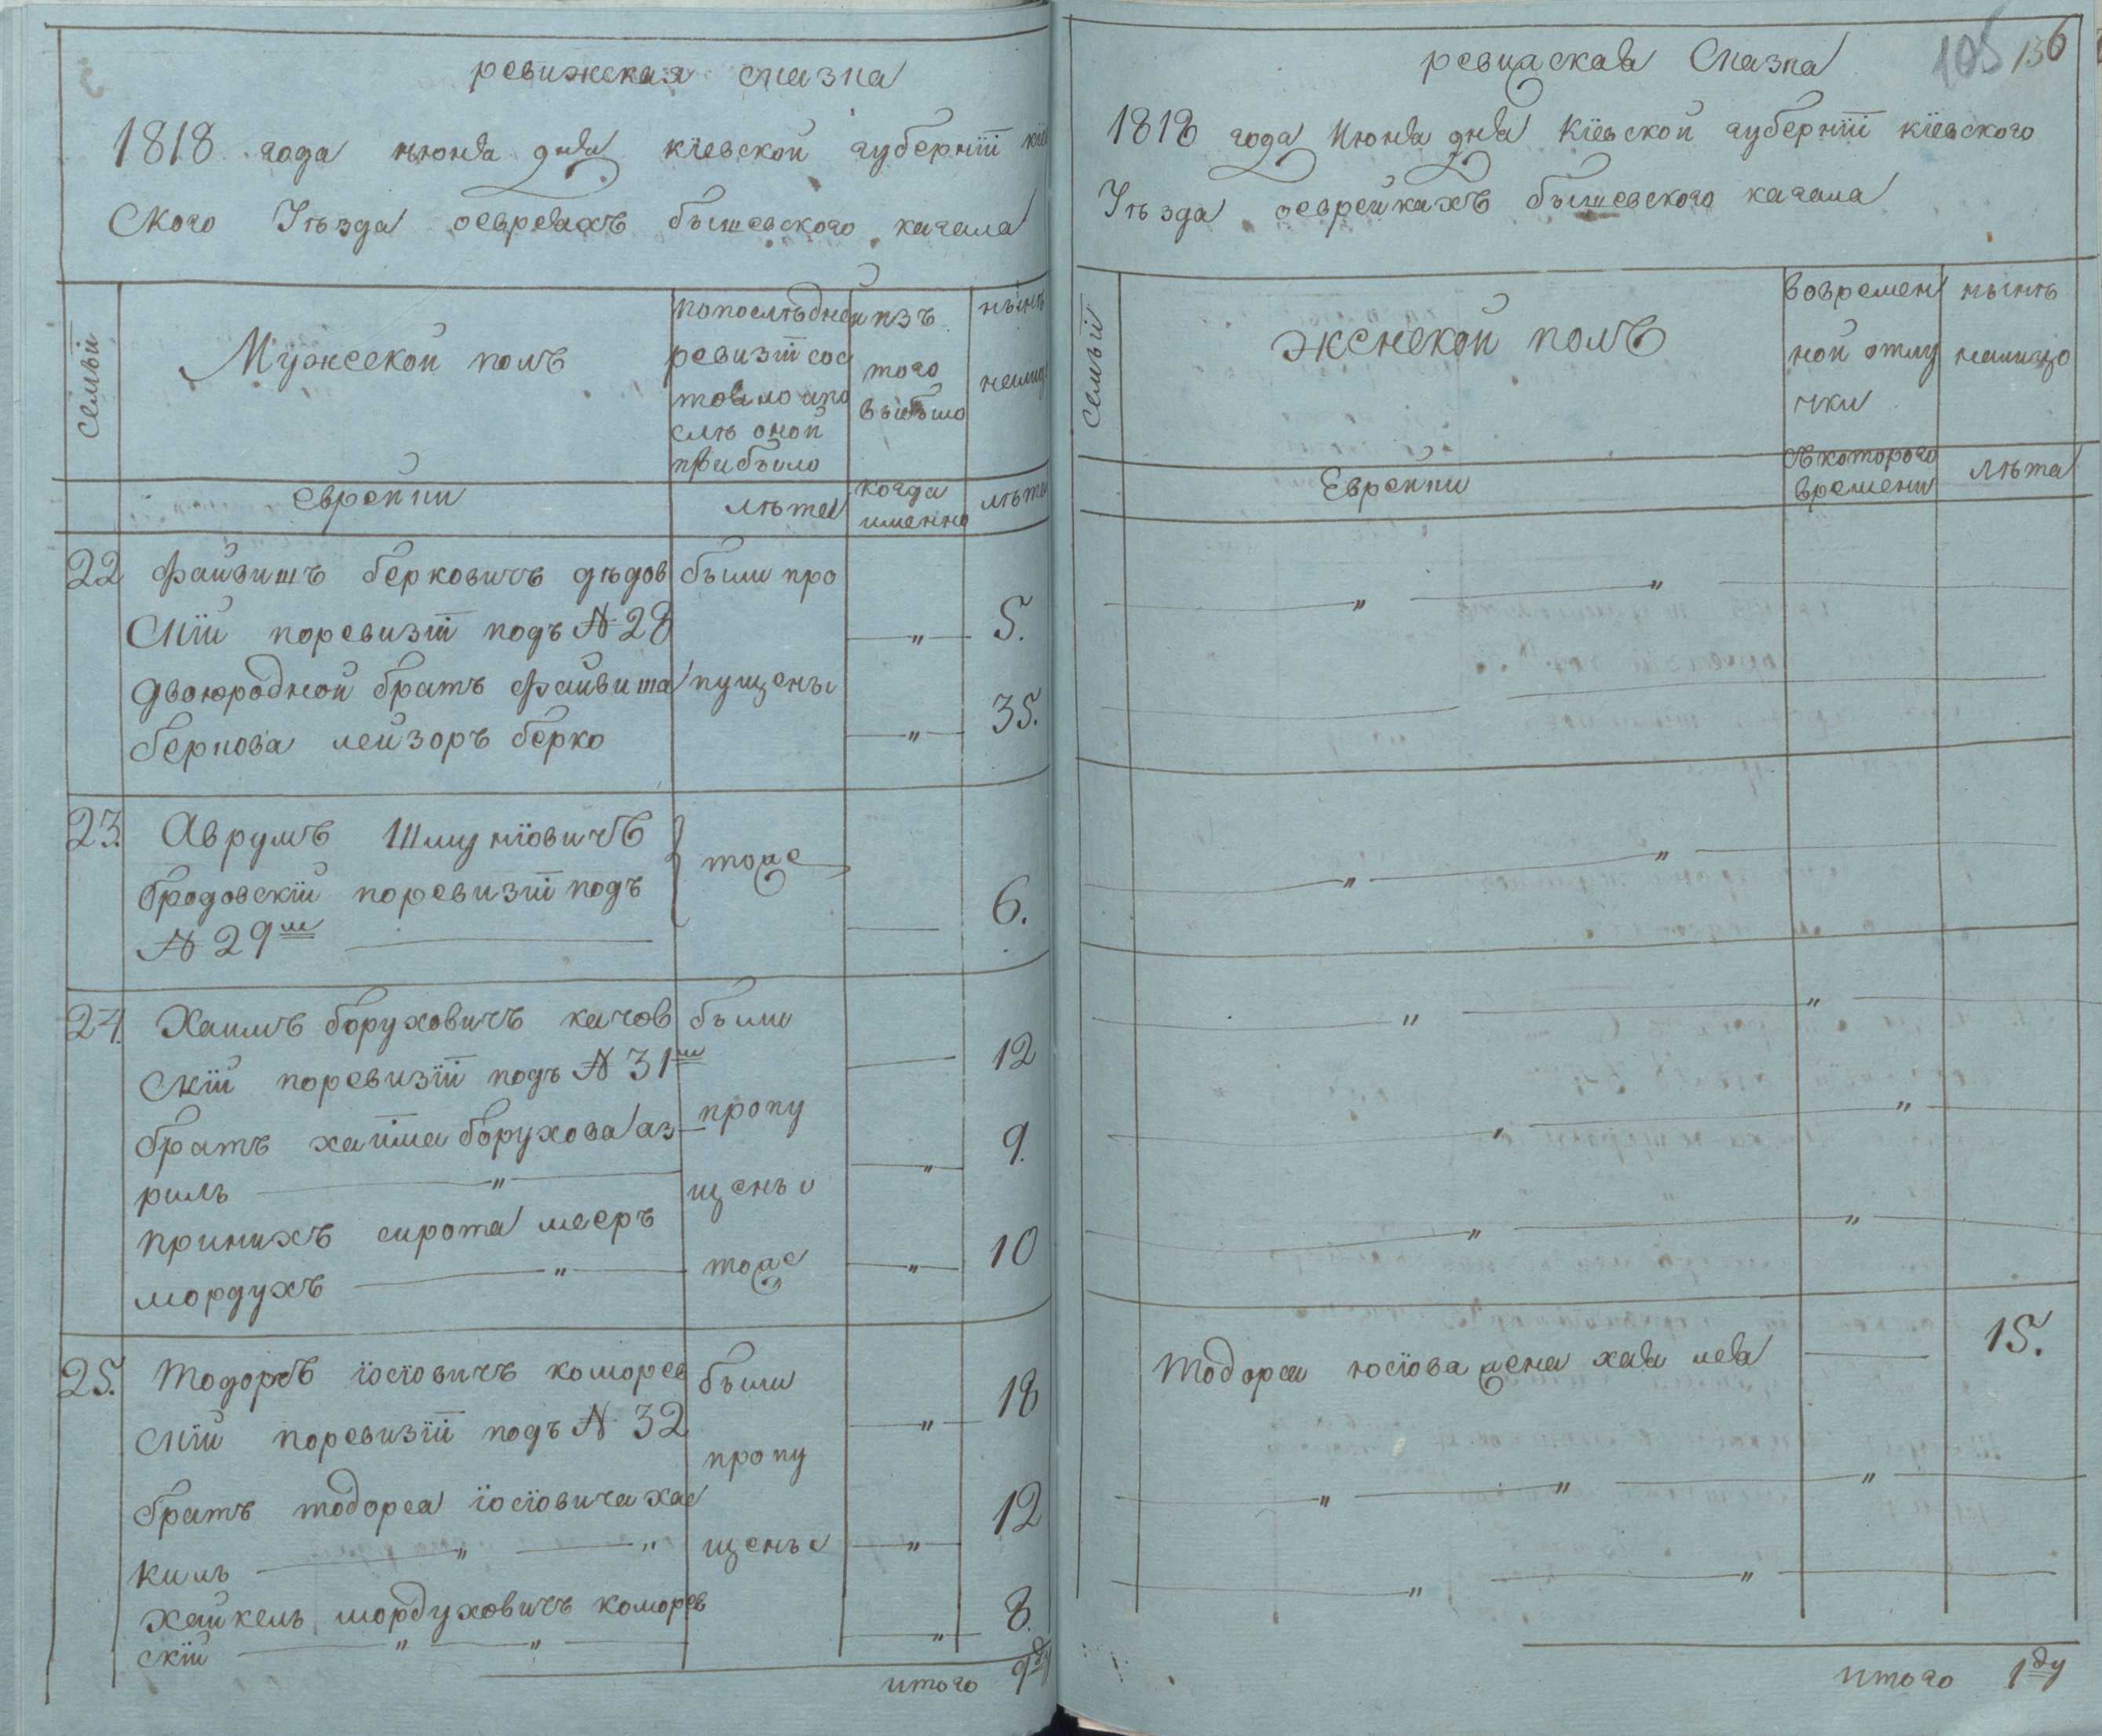 ревижская сказка
1818 года июня дня кїевской губернїи кїев
ского Уѣзда оевреяхъ бышевского кагала
семьи
Мужеской полъ
попослѣдней
ревизїи сос
тояло ипо
слѣ оной
прибыло
изъ
того
выбыло
нынѣ
налицо
евреини
лѣта
когда
именно
лѣта
22 Файвишъ берковичъ дѣдов были про
скїй поревизїи подъ № 28 „ 5.
двоюродной братъ Файвиша пущены
беркова лейзоръ берко „ 35.
23. Аврумъ Шмуйловичъ
бродовскїй поревизїи подъ тоже
№ 29м 6.
24. Хаимъ боруховичъ качов были
скїй поревизїи подъ № 31м 12
братъ хаима борухова аз пропу
риль „ щены „ 9.
принихъ сирота мееръ
мордухъ „ тоже „ 10
25. Тодоръ їосїовичъ коморов были
скїй поревизїи подъ № 32 „ 18
пропу
братъ тодорса їосїовича хас
киль „ „ щены „ 12
хайкель мордуховичъ коморов
скїй „ „ „ 8.
итого 9ду
105 156
ревижская Сказка
1818 года Июня дня Кїевской губернїи кїевского
Уѣзда оеврейкахъ бышевского кагала
семьи
женской полъ
вовремен
ной отлу
чки
нынѣ
налицо
Еврейки
съкоторого
времени
лѣта
„ „
„ „
„ „
„ „
„ „
Тодорса юсїова жена хая лея 15.
„ „ „
„ „
итого 1ду